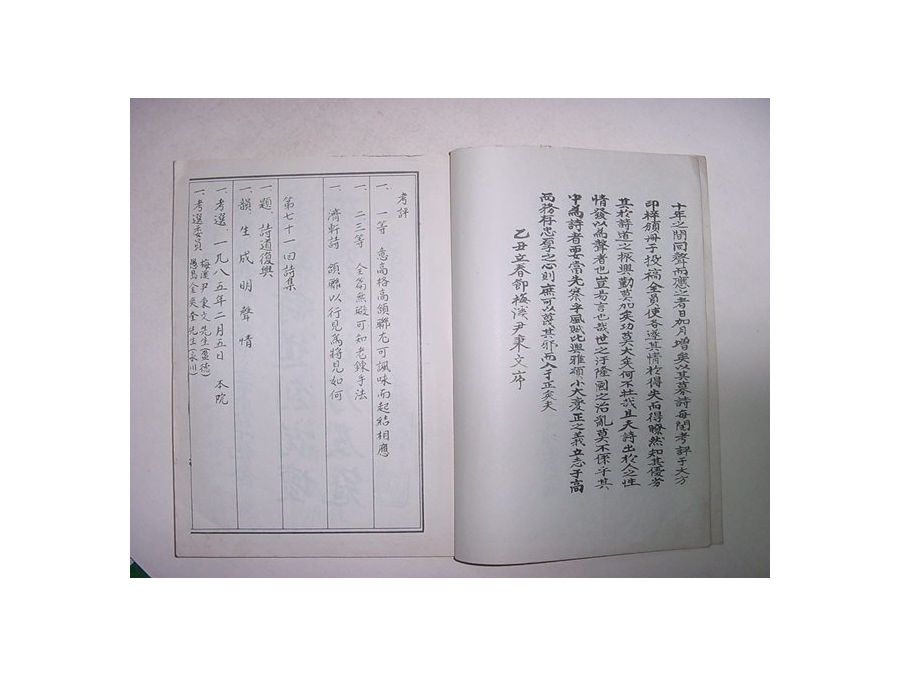 十年之間同聲而應之者日加月增矣以其募詩每閱考評于大方
印梓頒冊于投稿全員使各遂其情於得失而得瞭然知其優劣
其於詩道之振興勤莫加矣功莫大矣何不壯哉且夫詩出於人之性
情發以爲聲者也豈易言也哉世之汙隆國之治亂莫不係乎其
中爲詩者要當先察乎風賦比興雅頌小大變正之義立志于高
而務存忠厚之心則庶可以舊其邪而入于正矣夫
乙丑立春節梅溪尹秉文序
考評
一、一等 意高格高頷聯尤可諷味而起結相應
一、二三等 全篇無瑕可知老鍊手法
一、濟軒詩 頷聯以行見爲將見如何
第七十一回詩集
一、題、詩道復興
一、韻 生成明聲情
一、考選、一九八五年二月五日 本院
一、考選委員 梅溪尹秉文先生(盈德)
愚嵒金奭奎先生(永川)